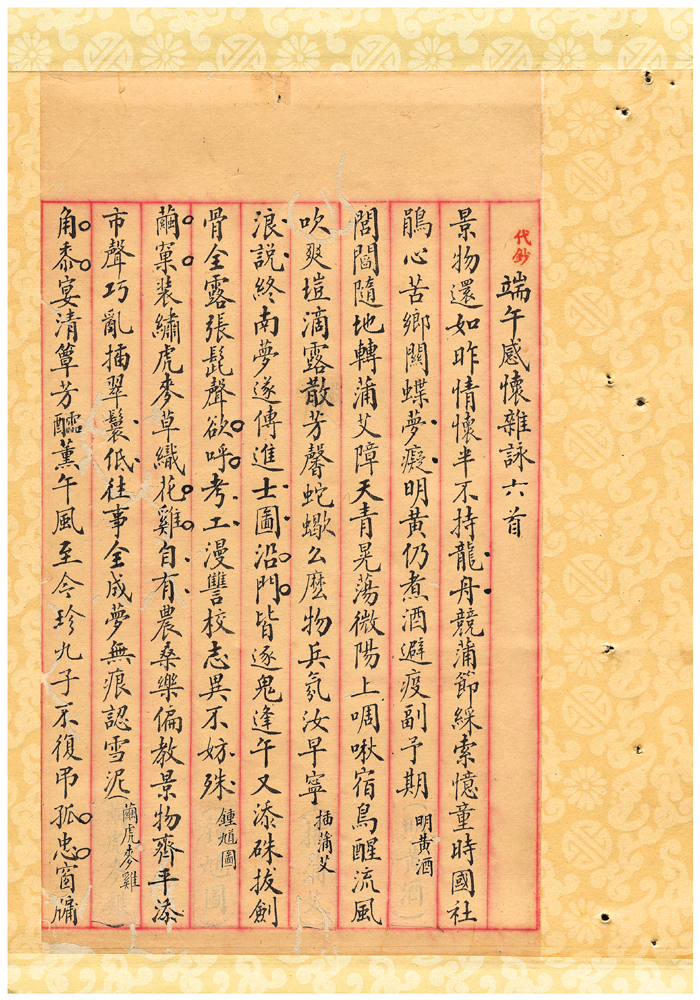 代鈔
端午感懷雜詠六首
景物還如昨情懷半不持龍舟競蒲節綵索憶童時國社
鵑心苦鄉關蝶夢癡明黃仍煮酒避疫副予期 明黃酒
閶閭隨地轉蒲艾障天青晃蕩微陽上啁啾宿鳥醒流風
吹爽塏滴露散芳馨蛇蠍么麼物兵氛汝早寧 插蒲艾
浪說終南夢遂傳進士圖沿門皆逐鬼逢午又添硃拔劍
骨全露張髭聲欲呼考工漫讐校志異不妨殊 鍾馗圖
繭窠裝繡虎麥草織花雞自有農桑樂偏教景物齊平添
市聲巧亂插翠鬟低往事全成夢無痕認雪泥 繭虎麥雞
角黍宴清簟芳醽薰午風至今珍九子不復弔孤忠窗牖